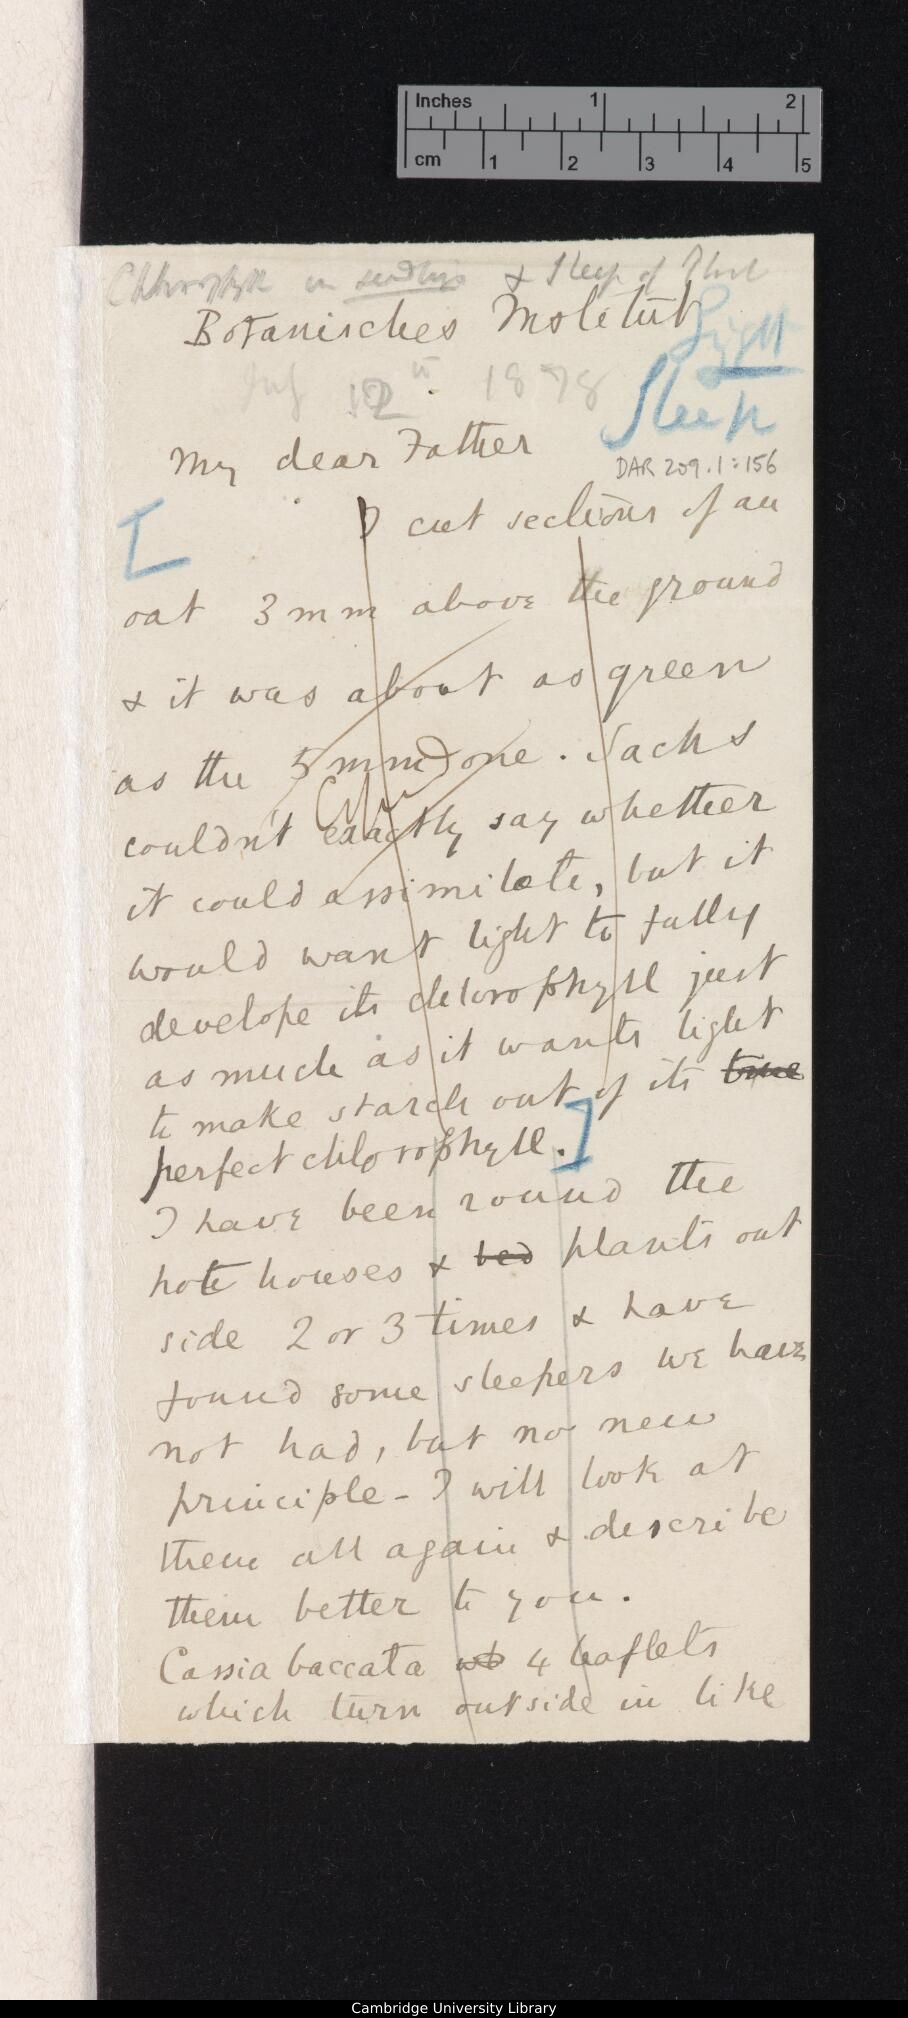 Inches 1 2
cm 1 2 3 4 5
Chlorophyll in seedlings & Sleep of Plant
Botanisches Institut
Light
July 12th 1878
Sleep
My dear Father
DAR 209.1:156
[ I cut sections of an
oat 3 mm above the ground
& it was about as green
as the 5 mm one. Sachs
couldn't exactly say whether
it could assimilate, but it
would want light to fully
develope its chlorophyll just
as much as it wants light
to make starch out of its true
perfect chlorophyll.]
I have been round the
hot houses & bed plants out
side 2 or 3 times & have
found some sleepers we have
not had, but no new
principle - I will look at
them all again & describe
them better to you.
Cassia baccata 4 leaflets
which turn outside in like
Cambridge University Library